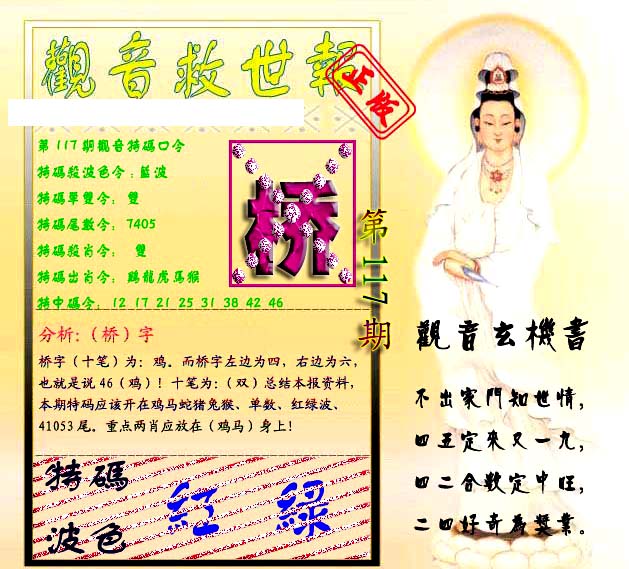 觀音救世報
正版
第117期觀音特碼口令
特碼殺波色令:藍波
特碼單雙令: 雙
特碼尾數令: 7405
特碼殺肖令: 雙
特碼出肖令: 鷄龍虎馬猴
特中碼令: 12 17 21 25 31 38 42 46
桥
第117期
分析:（桥）字
桥字（十笔）为：鸡。而桥字左边为四，右边为六，
也就是说 46（鸡）！十笔为：（双）总结本报资料，
本期特码应该开在鸡马蛇猪兔猴、单数、红绿波、
41053 尾。重点两肖应放在（鸡马）身上！
特碼
波色
紅 綠
觀音玄機書
不出家門知世情，
四五定來又一九，
四二合數定中旺，
二四好奇為獎業。